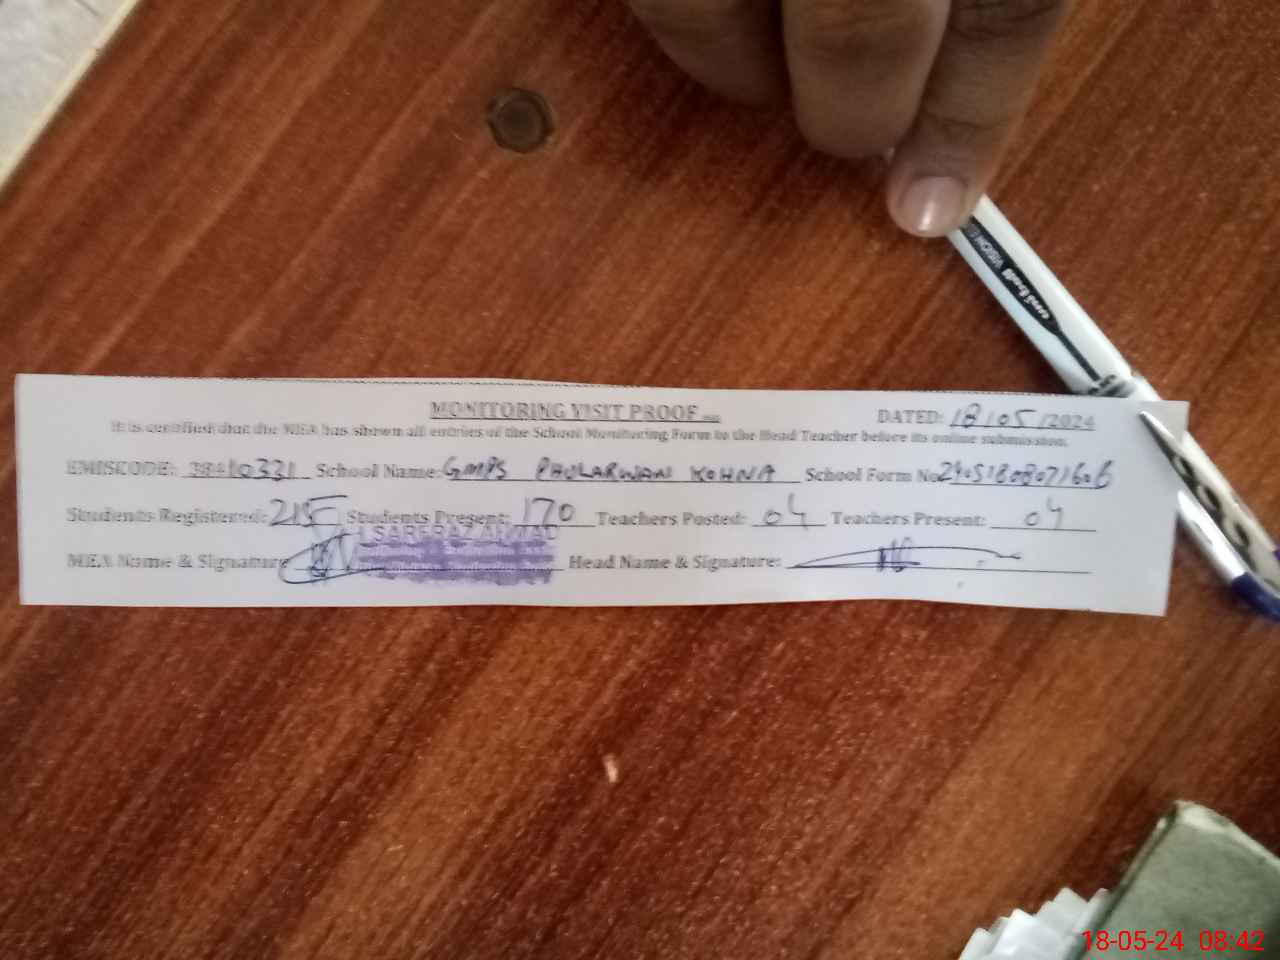 MONITORING VISIT PROOF
DATED: 18/05/2024
It is certified that the MEA has shown all entries of the School Monitoring Form to the Head Teacher before its online submission.
EMISCODE: 38410331 School Name: GMPS PHULARWAN KOHNA School Form No
Students Registered: 215 Students Present: 170 Teachers Posted: 04 Teachers Present: 04
MEA Name & Signature Head Name & Signature:
uni-ball VISION
18-05-24 08:42